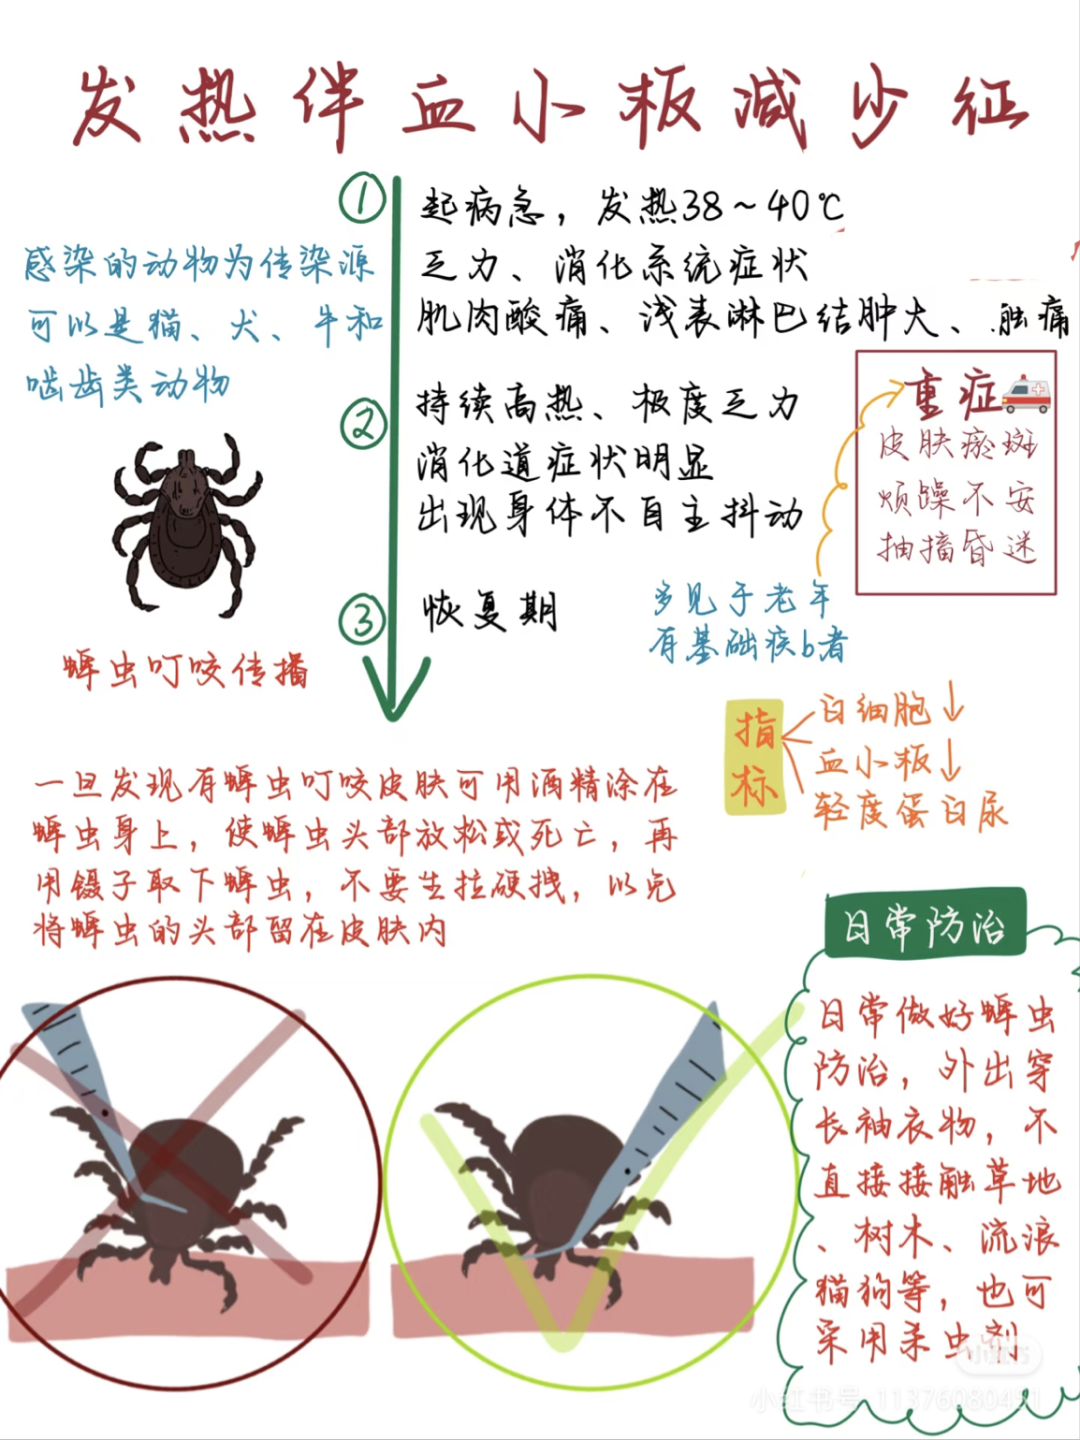 发热伴血小板减少征
①
起病急，发热38~40℃
乏力、消化系统症状
肌肉酸痛、浅表淋巴结肿大、触痛
感染的动物为传染源
可以是猫、犬、牛和
啮齿类动物
②
持续高热、极度乏力
消化道症状明显
出现身体不自主抖动
重症
皮肤瘀斑
烦躁不安
抽搐昏迷
③
恢复期
多见于老年
有基础疾b者
蜱虫叮咬传播
指标
白细胞↓
血小板↓
轻度蛋白尿
一旦发现有蜱虫叮咬皮肤可用酒精涂在
蜱虫身上，使蜱虫头部放松或死亡，再
用镊子取下蜱虫，不要生拉硬拽，以免
将蜱虫的头部留在皮肤内
日常防治
日常做好蜱虫
防治，外出穿
长袖衣物，不
直接接触草地
、树木、流浪
猫狗等，也可
采用杀虫剂
小红书号：11376080451